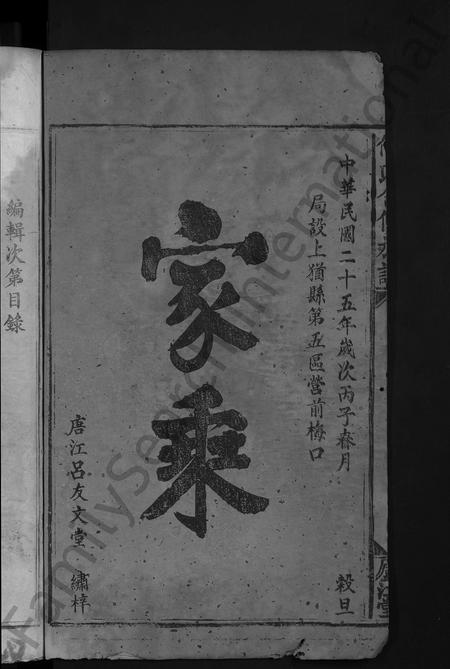 中華民國二十五年歲次丙子春月 穀旦
局設上猶縣第五區營前梅口
家乘
唐江呂友文堂 繡梓
編輯次第目錄
FamilySearch International